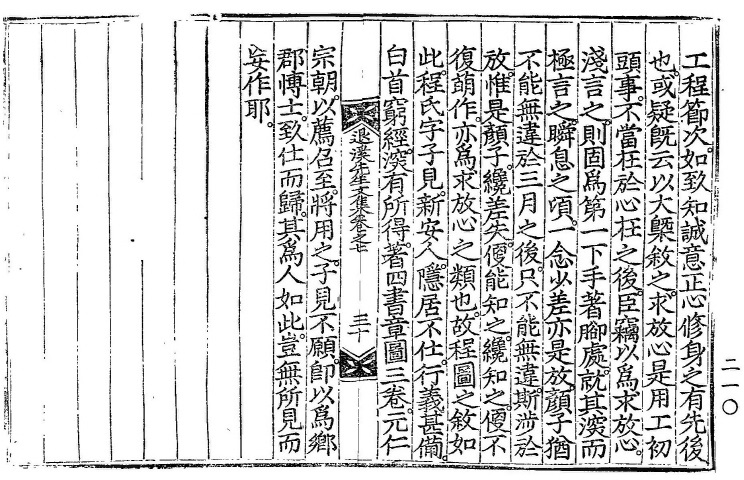 二一〇
工程節次。如致知誠意正心修身之有先後
也。或疑旣云以大槩敍之。求放心是用工初
頭事。不當在於心在之後。臣竊以爲求放心。
淺言之。則固爲第一下手著脚處。就其深而
極言之。瞬息之頃。一念少差亦是放。顔子猶
不能無違於三月之後。只不能無違。斯涉於
放。惟是顔子。纔差失。便能知之。纔知之。便不
復萌作。亦爲求放心之類也。故程圖之敍如
此。程氏字子見。新安人。隱居不仕。行義甚備。
白首窮經。深有所得。著四書章圖三卷。元仁
退溪先生文集卷之七 三十
宗朝。以薦召至。將用之。子見不願。卽以爲鄕
郡博士。致仕而歸。其爲人如此。豈無所見而
妄作耶。